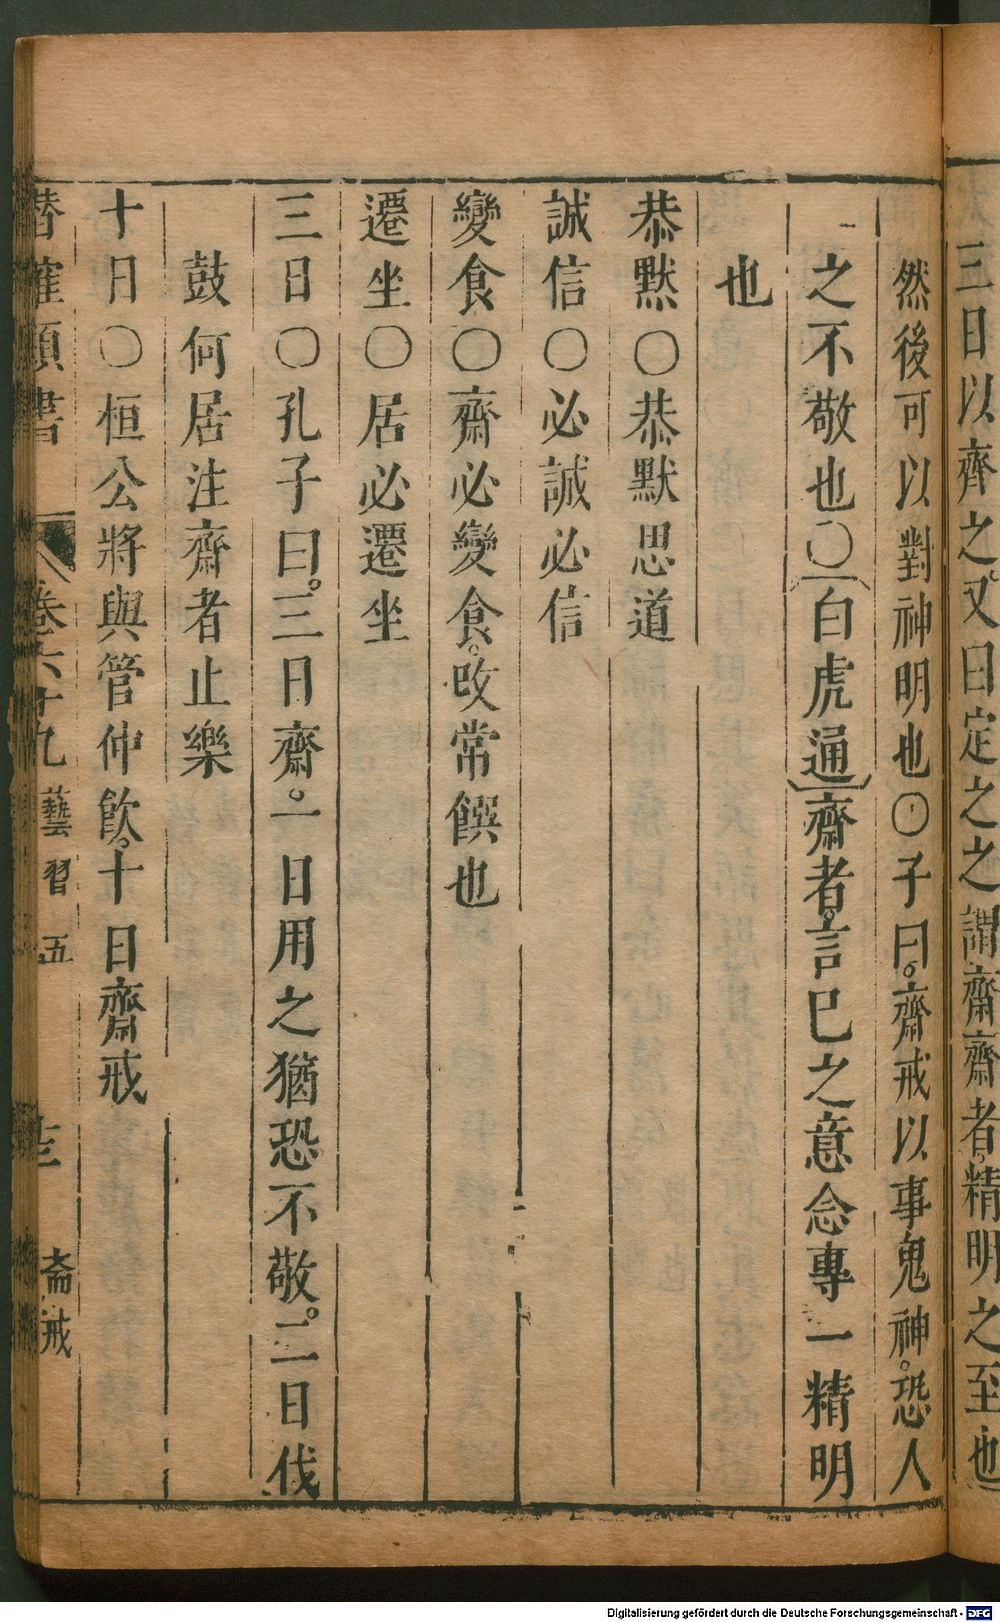 三日以齊之又曰定之之謂齋齋者精明之至也
然後可以對神明也○子曰齋戒以事鬼神恐人
之不敬也○白虎通齋者言巳之意念專一精明
也
恭默○恭默思道
誠信○必誠必信
變食○齋必變食改常饌也
遷坐○居必遷坐
三日○孔子曰三日齋一日用之猶恐不敬二日伐
鼓何居注齋者止樂
十日○桓公將與管仲飲十日齋戒
潛確類書 卷六十九 藝習五 齋戒
Digitalisierung gefördert durch die Deutsche Forschungsgemeinschaft - DFG